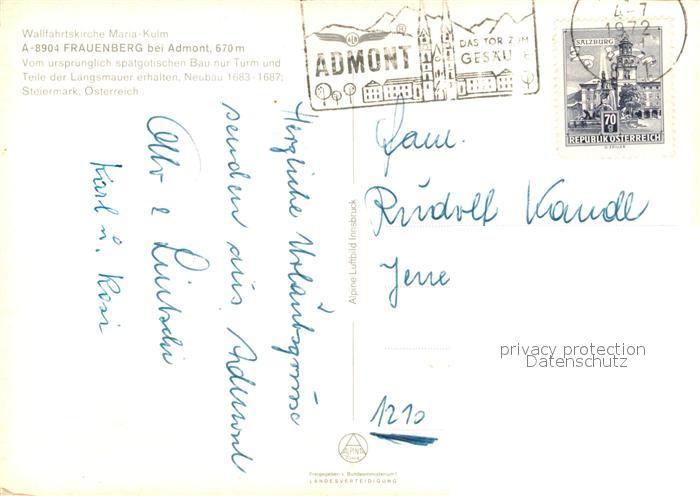 Wallfahrtskirche Maria-Kulm
A-8904 FRAUENBERG bei Admont, 670 m
Vom ursprunglich spätgotischen Bau nur Turm und
Teile der Langsmauer erhalten, Neubau 1683-1687;
Steiermark, Österreich
ADMONT
DAS TOR ZUM
GESÄUSE
4-7
1972
SALZBURG
70
REPUBLIK ÖSTERREICH
Herzliche Urlaubsgrüsse
senden aus Admont
Otto &
Karl u. Rosi
Alpine Luftbild Innsbruck
Fam.
Rudolf Kandl
1210
privacy protection
Datenschutz
ALPINE
Freigegeben v. Bundesministerium f.
LANDESVERTEIDIGUNG